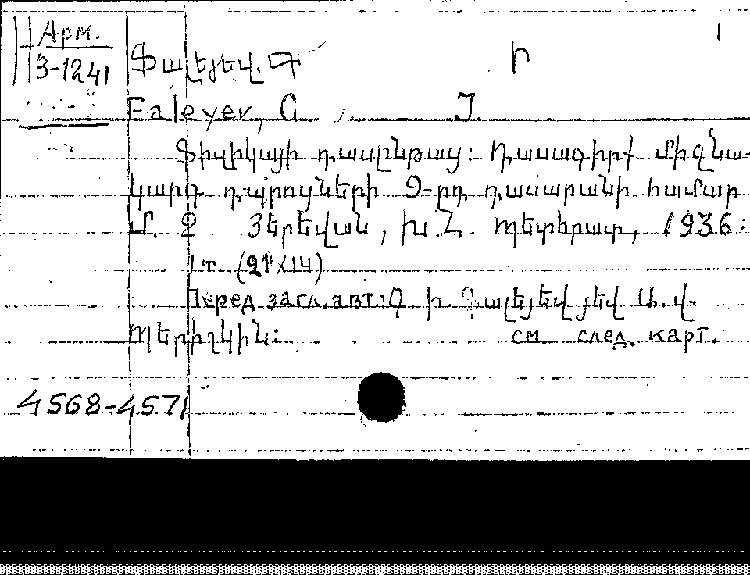 Арм.
3-1241
Ֆալեյեվ. Գ Ի
Faleyev, G. J.
Ֆիզիկայի դասընթաց: Դասագիրք միջնա-
կարգ դպրոցների 9-րդ դասարանի համար
Մ. 2 Յերեվան, Խ.Հ. Պետհրատ, 1936:
1 т. (21×14)
Перед загл. авт: Գ Ի Ֆալեյեվ յեվ Ա. վ.
Պերիշկին: см след. карт.
4568-4571